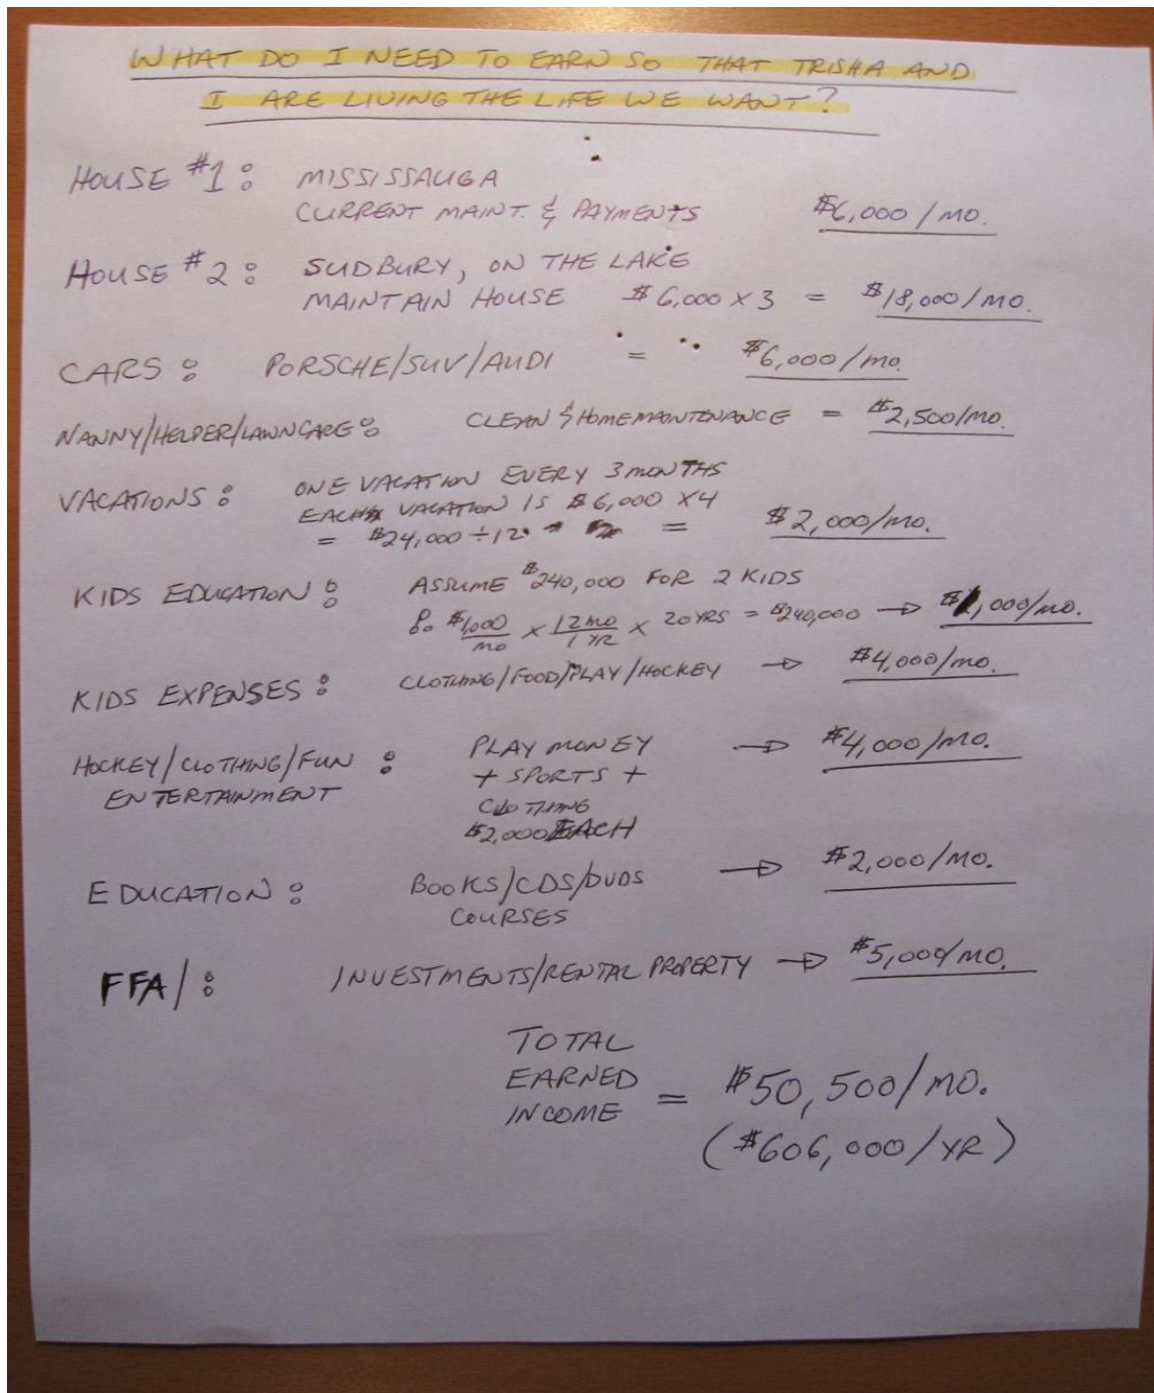 WHAT DO I NEED TO EARN SO THAT TRISHA AND
I ARE LIVING THE LIFE WE WANT?
HOUSE #1: MISSISSAUGA
CURRENT MAINT. & PAYMENTS $6,000/MO.
HOUSE #2: SUDBURY, ON THE LAKE
MAINTAIN HOUSE $6,000 X 3 = $18,000/MO.
CARS: PORSCHE/SUV/AUDI = $6,000/MO.
NANNY/HELPER/LAWNCARE: CLEAN & HOME MAINTENANCE = $2,500/MO.
VACATIONS: ONE VACATION EVERY 3 MONTHS
EACH VACATION IS $6,000 X4
= $24,000 ÷ 12 = $2,000/MO.
KIDS EDUCATION: ASSUME $240,000 FOR 2 KIDS
$1,000/MO X 12 MO/1 YR X 20 YRS = $240,000 → $1,000/MO.
KIDS EXPENSES: CLOTHING/FOOD/PLAY/HOCKEY → $4,000/MO.
HOCKEY/CLOTHING/FUN: PLAY MONEY → $4,000/MO.
ENTERTAINMENT + SPORTS +
CLOTHING
$2,000 EACH
EDUCATION: BOOKS/CDS/DVDS → $2,000/MO.
COURSES
FFA/: INVESTMENTS/RENTAL PROPERTY → $5,000/MO.
TOTAL
EARNED
INCOME = $50,500/MO.
($606,000/YR)